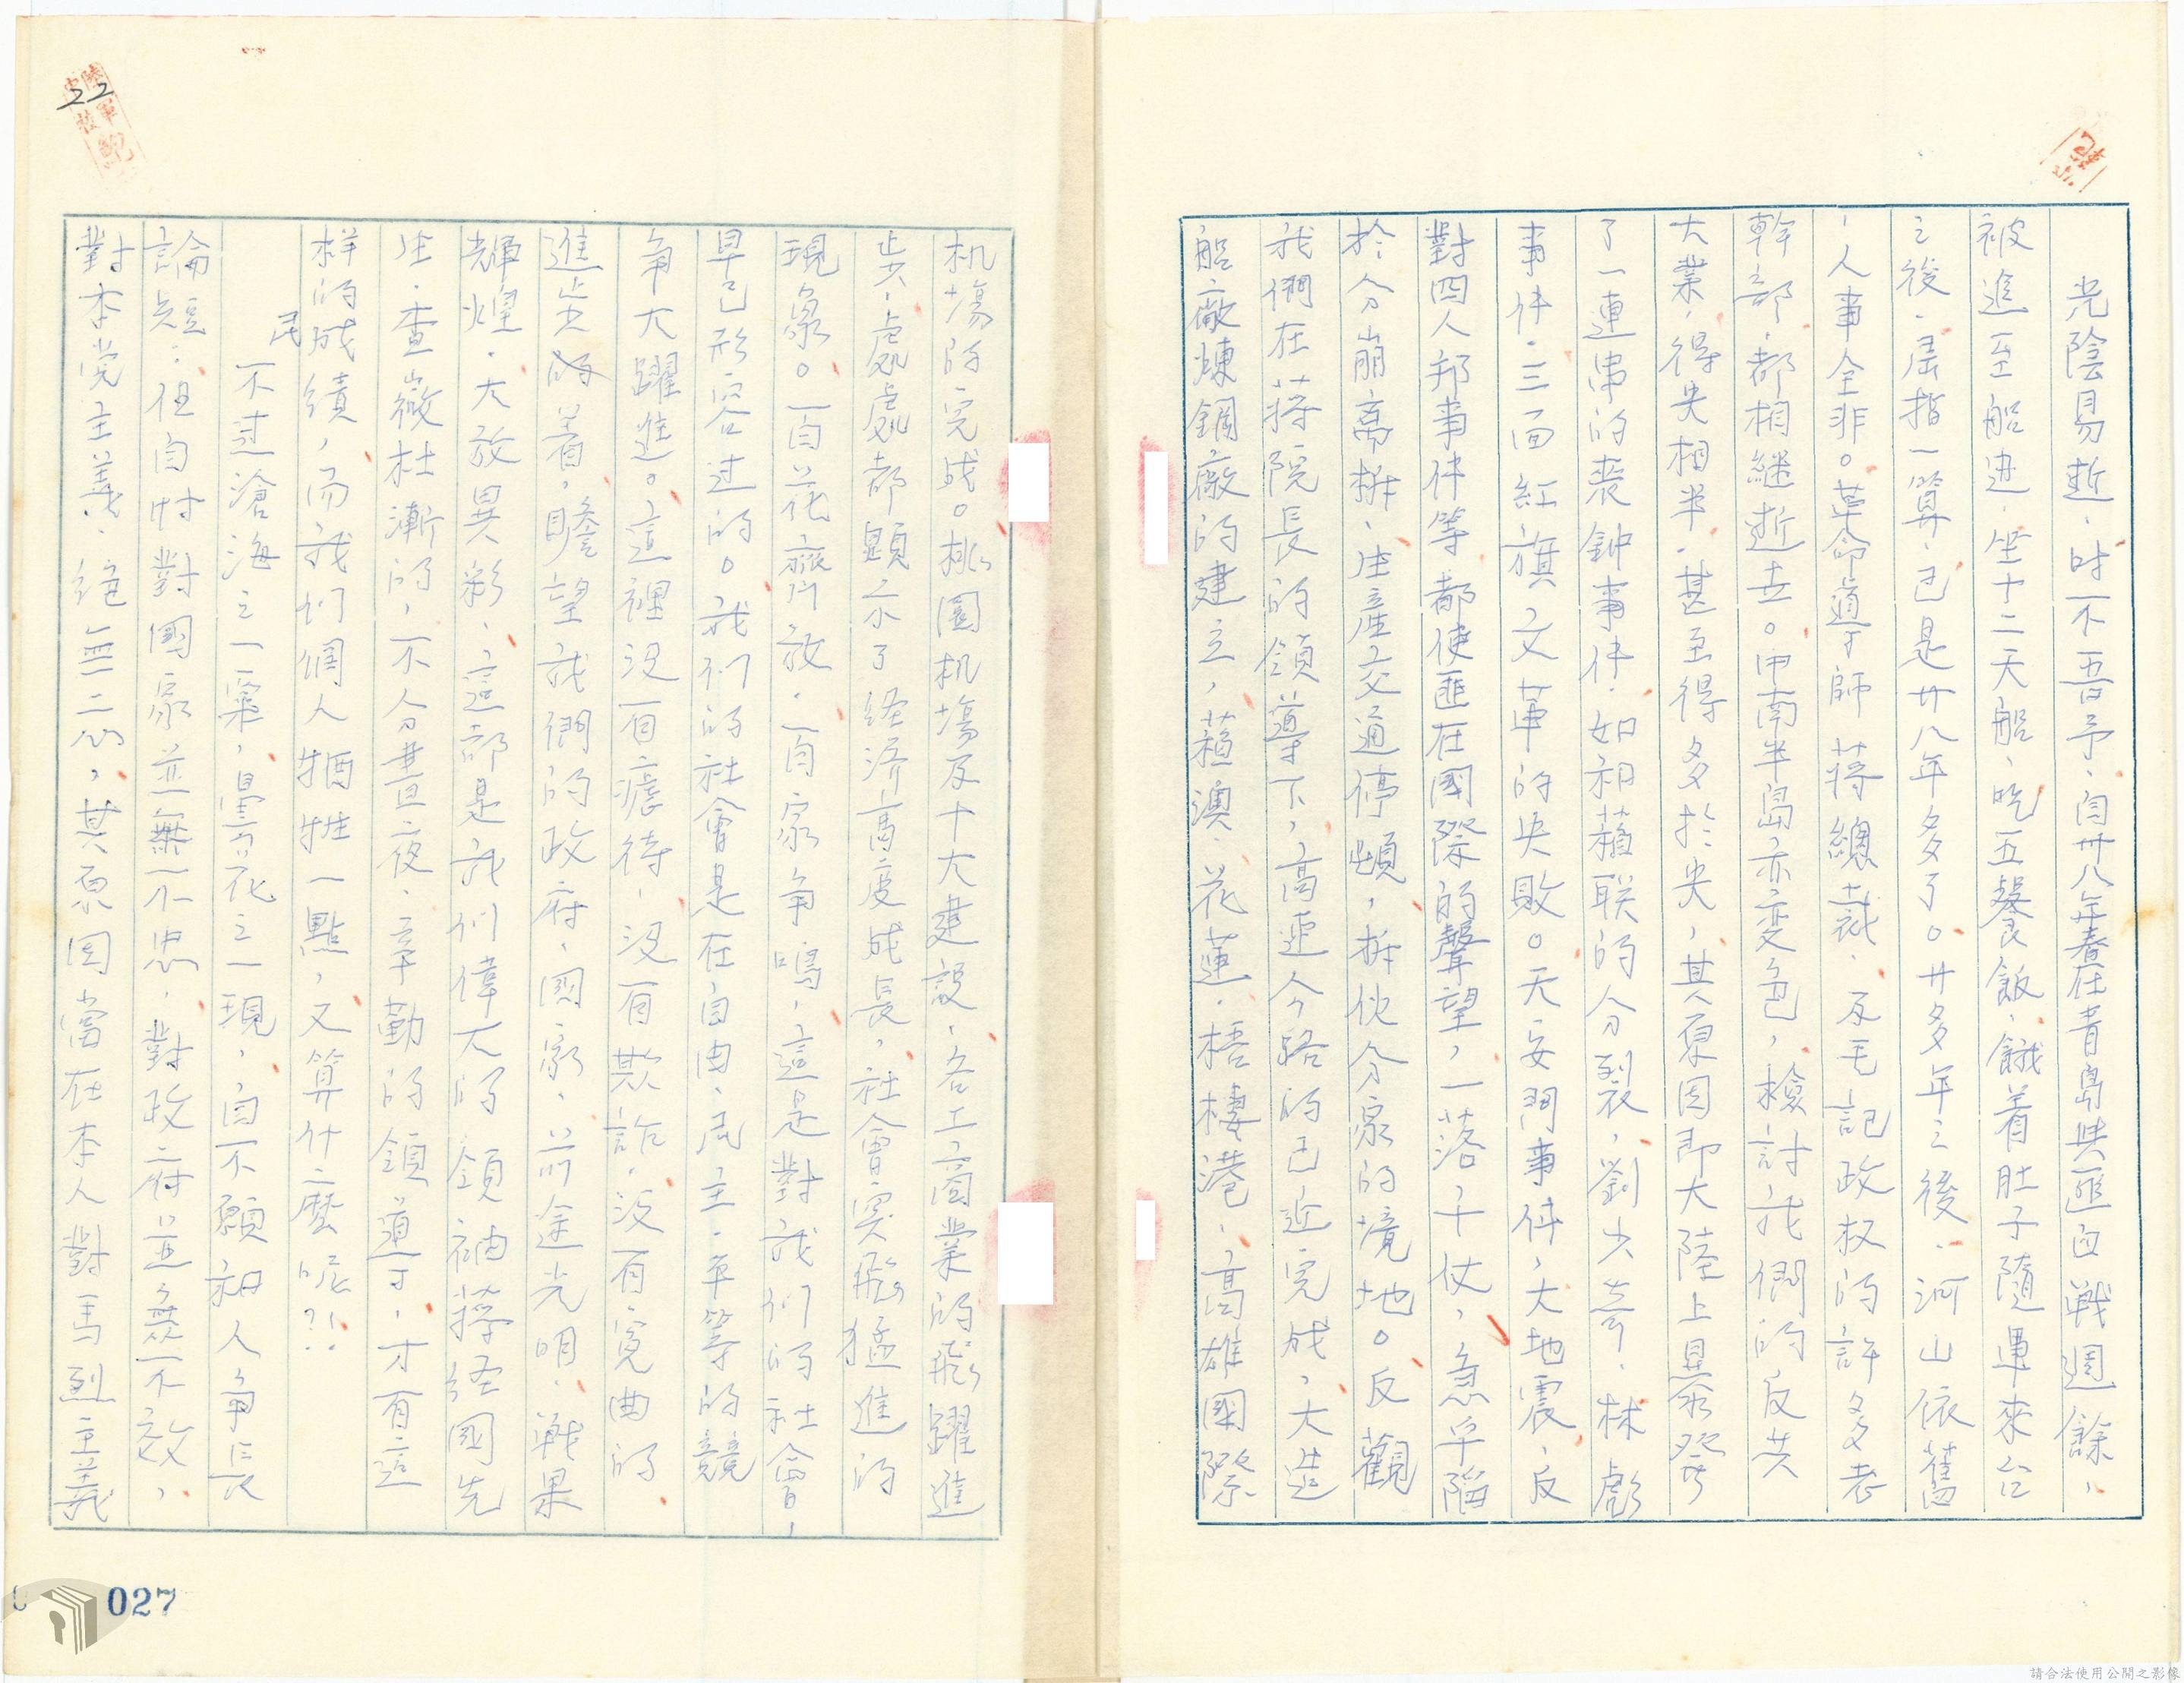 光陰易逝，时不吾予，自卅八年春在青島與匪白戰週餘，
被迫至船边，坐十二天船，吃五餐飯，餓着肚子隨軍來台
之後，屈指一算，已是廿八年多了。廿多年之後，河山依舊
，人事全非。革命導师 蒋總裁，及毛記政权的許多老
幹部，都相継逝去。中南半島亦变色，檢討我們的反共
大業，得失相半，甚至得多於失，其原因即大陸上暴發
了一連串的丧鈡事件，如和蘓联的分裂，劉少奇，林彪
事件，三面紅旗文革的失敗。天安門事件，大地震，反
對四人邦事件等都使匪在國際的聲望，一落千仗，急乎陷
於分崩离拆，生產交通停頓，拆伙分家的境地。反觀
我們在蒋院長的領導下，高速公路的已近完成，大造
船廠煉鋼廠的建立，蘓澳，花蓮，梧棲港，高雄國際
机塲的完成。桃園机塲及十大建設，各工，商業的飛躍進
步，處處都顕示了経济高度成長，社會突飛猛進的
現象。一百花齊放，一百家爭鳴，這是對我们的社會，
早已形容过的。我们的社會是在自由，民主，平等的競
爭大躍進。這裡没有虐待，没有欺詐，没有寃曲的
進步的着，瞻望我們的政府，國家，前途光明，戰果
輝煌，大放異彩，這都是我们偉大的領袖蒋经國先
生，查微杜漸的，不分晝夜，辛勤的領導，才有這
样的成績，而我们個人犧牲一點，又算什麼呢？！
民
不过滄海之一粟，曇花之一現，自不願和人争長
論短：但自忖對國家並無不忠，對政府並無不效，
對本党主義，绝無二心，其原因當在本人對馬烈主義
22
陸軍官校
027
請合法使用公開之影像